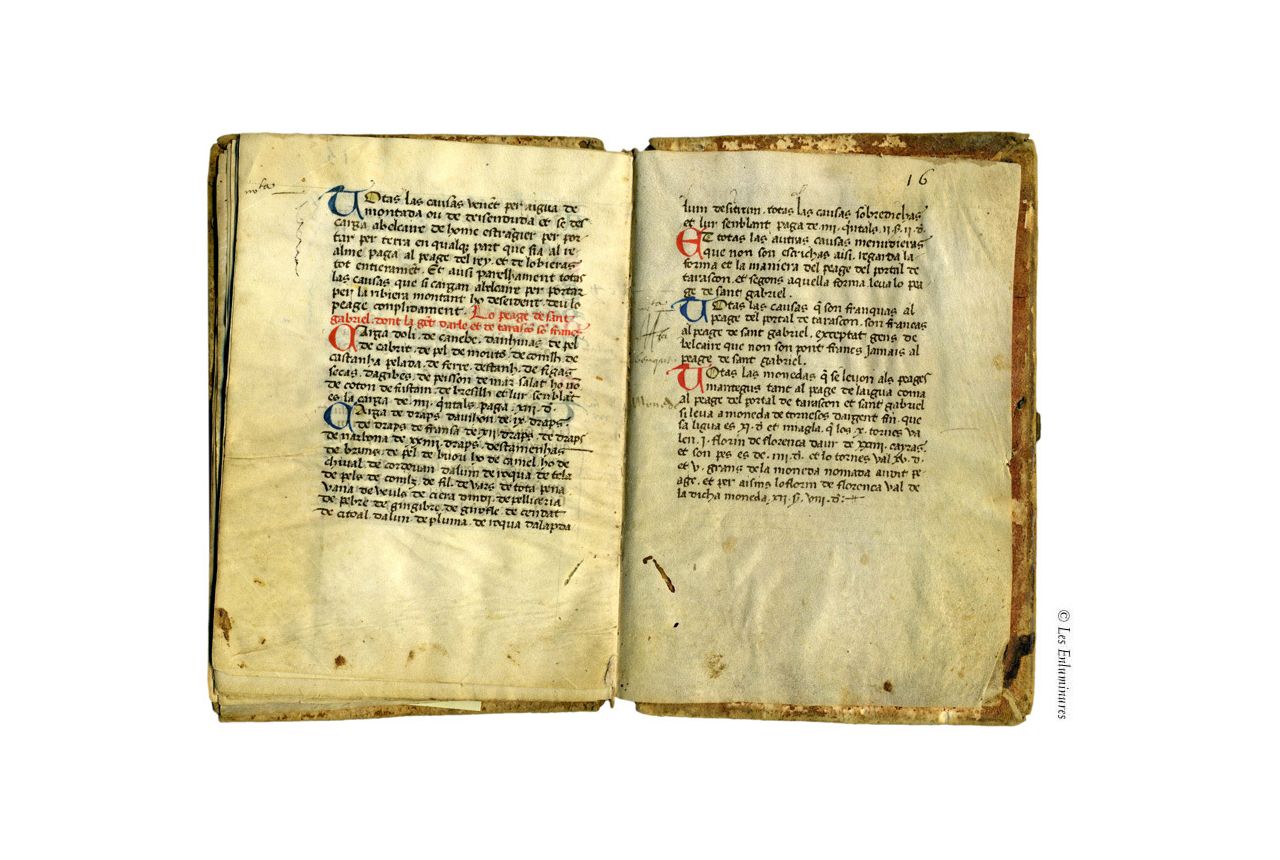 nota
Totas las causas venent per aigua de
montada ou de deisenduda et se des
carga abelcaire de home estragier per por
tar per terra en qualque part que sia al re
alme paga al peage del rey. et de lobieras
tot entierament. Et ausi parelhament totas
las causas que si cargan abelcaire per portar
per la ribiera montant ho deisendent. deu lo
peage complidament. Lo peage de sant
gabriel. dont la gent darle et de tarascon son franqz
Carga doli. de canebe. danhinas de pel
de cabrit. de pel de mouton. de conilh. de
castanha pelada. de ferre. destanh. de figas
secas. de peisson de mar salat ho no
de coton de fustani. de bresilh et lur senblat
es la carga de .iii. quintals. paga .xii. d.
Carga de draps davinhon. de ix. draps.
de draps de fransa de xii. draps. de draps
de narbona de xxiiii. draps. destamenhas
de bruns. de pel de buou ho de camel ho de
chival. de cordoan. dalum de roqua. de tela
de pels de conilz. de fil. de vars. de tota pena
vana. de veuls. de ciera dindi. de pelliceria
de pebre. de gingibre. de girofle. de cendat
de citoal. dalun. de pluma. de roqua dalapda
16
lum desucrum. totas las causas sobredichas
et lur senblant paga de .iii. quitals. ii. s. ii. d.
Et totas las autras causas menudieras
que non son escrichas aisi. regarda la
forma et la maniera del peage del portal de
tarascon. et segons aquella forma leva lo pea
ge de sant gabriel.
Totas las causas q son franquas al
peage del portal de tarascon. son francas
al peage de sant gabriel. exceptat gens de
belcaire que non son pont francs jamais al
peage de sant gabriel.
Totas las monedas q se levon als peages
mantegus tant al peage de laigua coma
al peage del portal de tarascon et sant gabriel
si leva a moneda de tornesos dargent fin. que
sa ligua es xi. d. et miagla. q los x. tornes va
len .i. florin de florenca daur de xxiiii. cayras.
et son pes es de .iii. d. et lo tornes val xv. d.
et v. grans de la moneda nomada audit pe
age. et per aisins lo florin de florenca val de
la dicha moneda. xii. s. viii. d.
© Les Enluminures